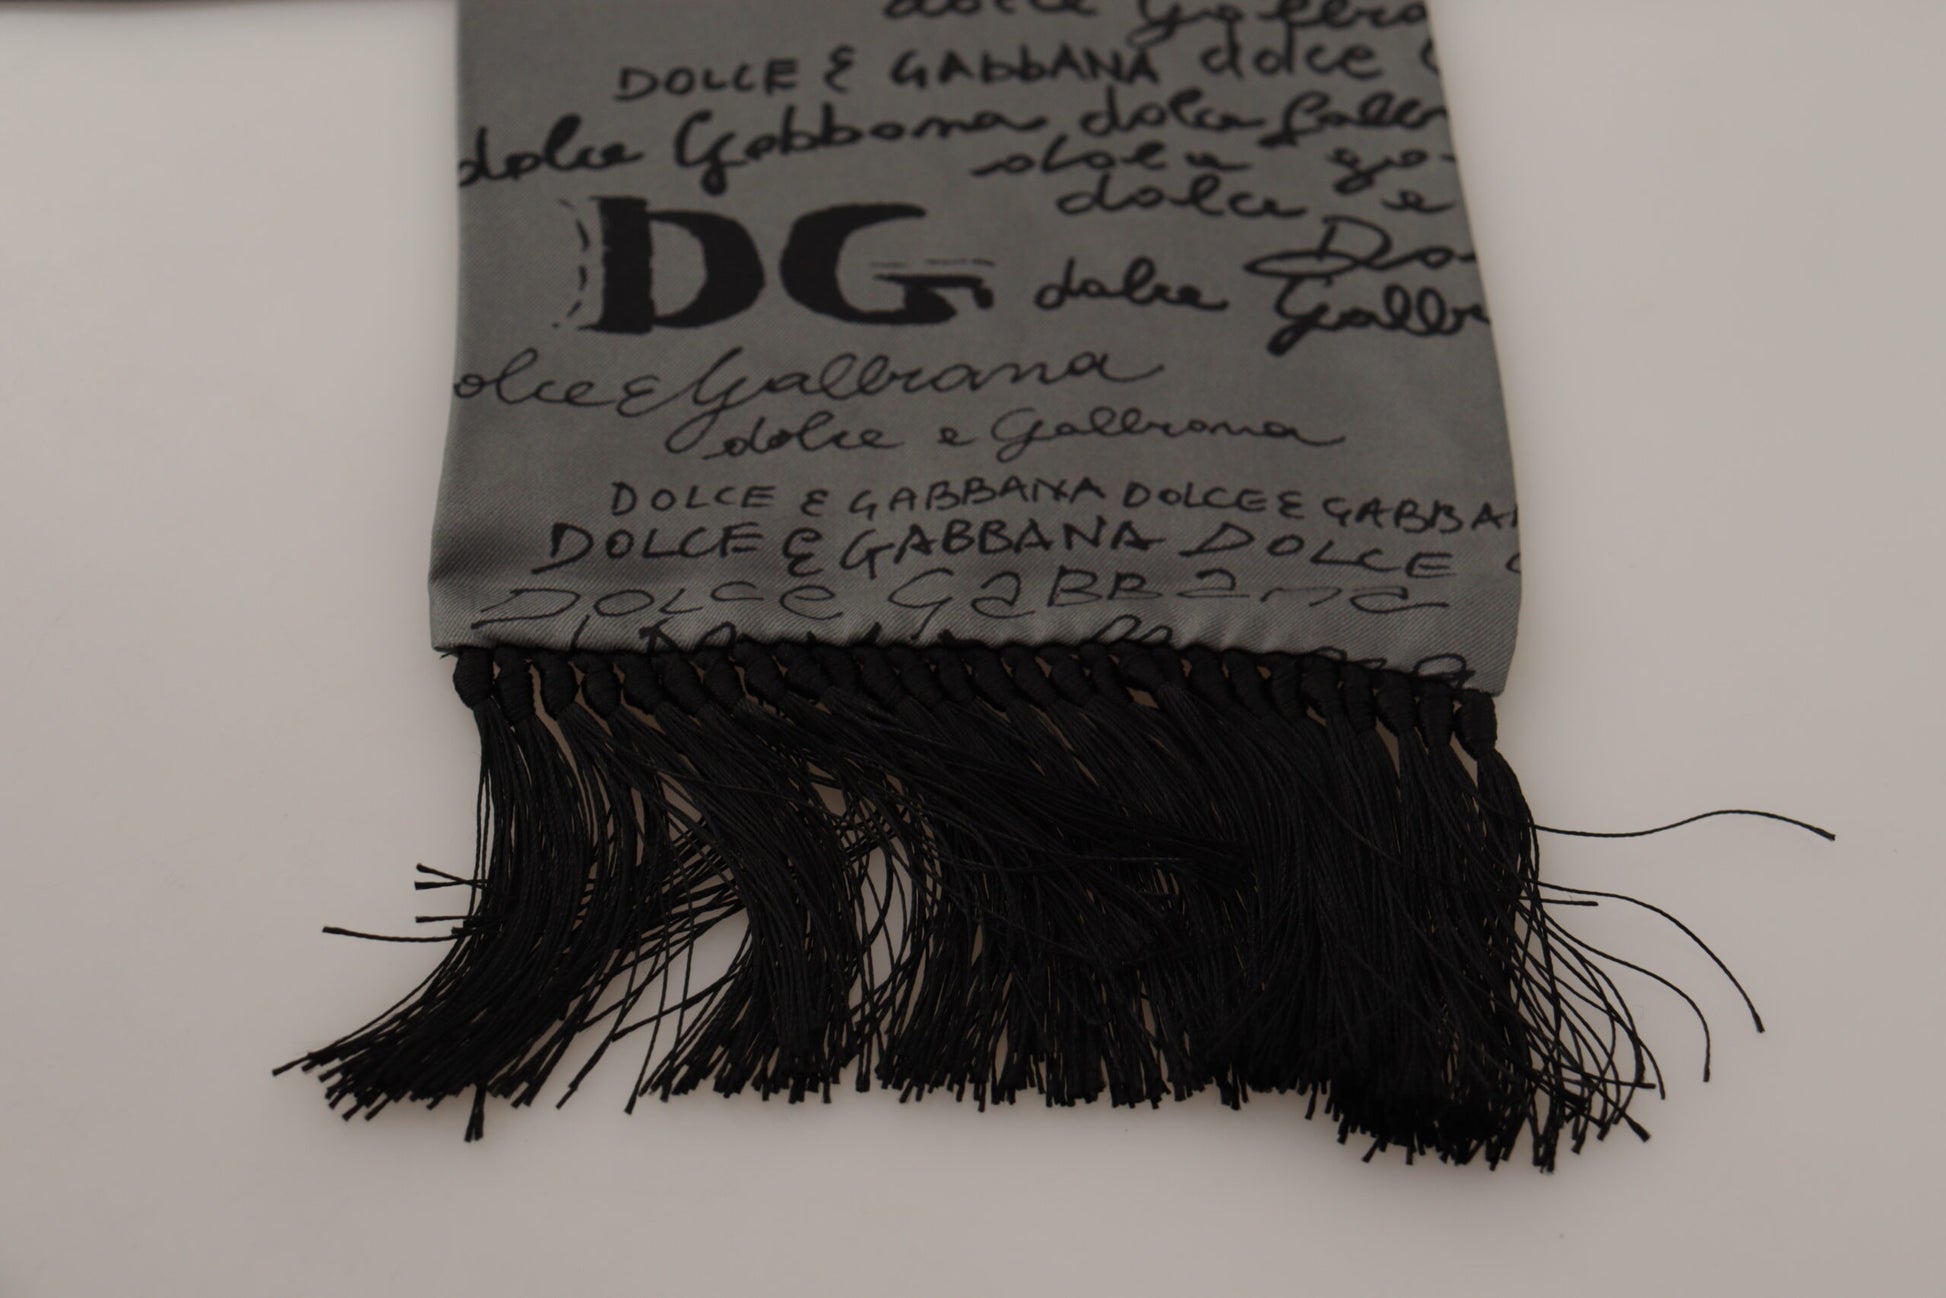 dolce Gabbana
DOLCE & GAbbANA dolce
dolce Gabbana dolce Gabban
dolce ga
dolce e
DG dolce Do
Gabb
olce & Gabbana
dolce e Gabbana
DOLCE & GABBANA DOLCE & GABBA
DOLCE & GABBANA DOLCE
DOLCE GaBBana